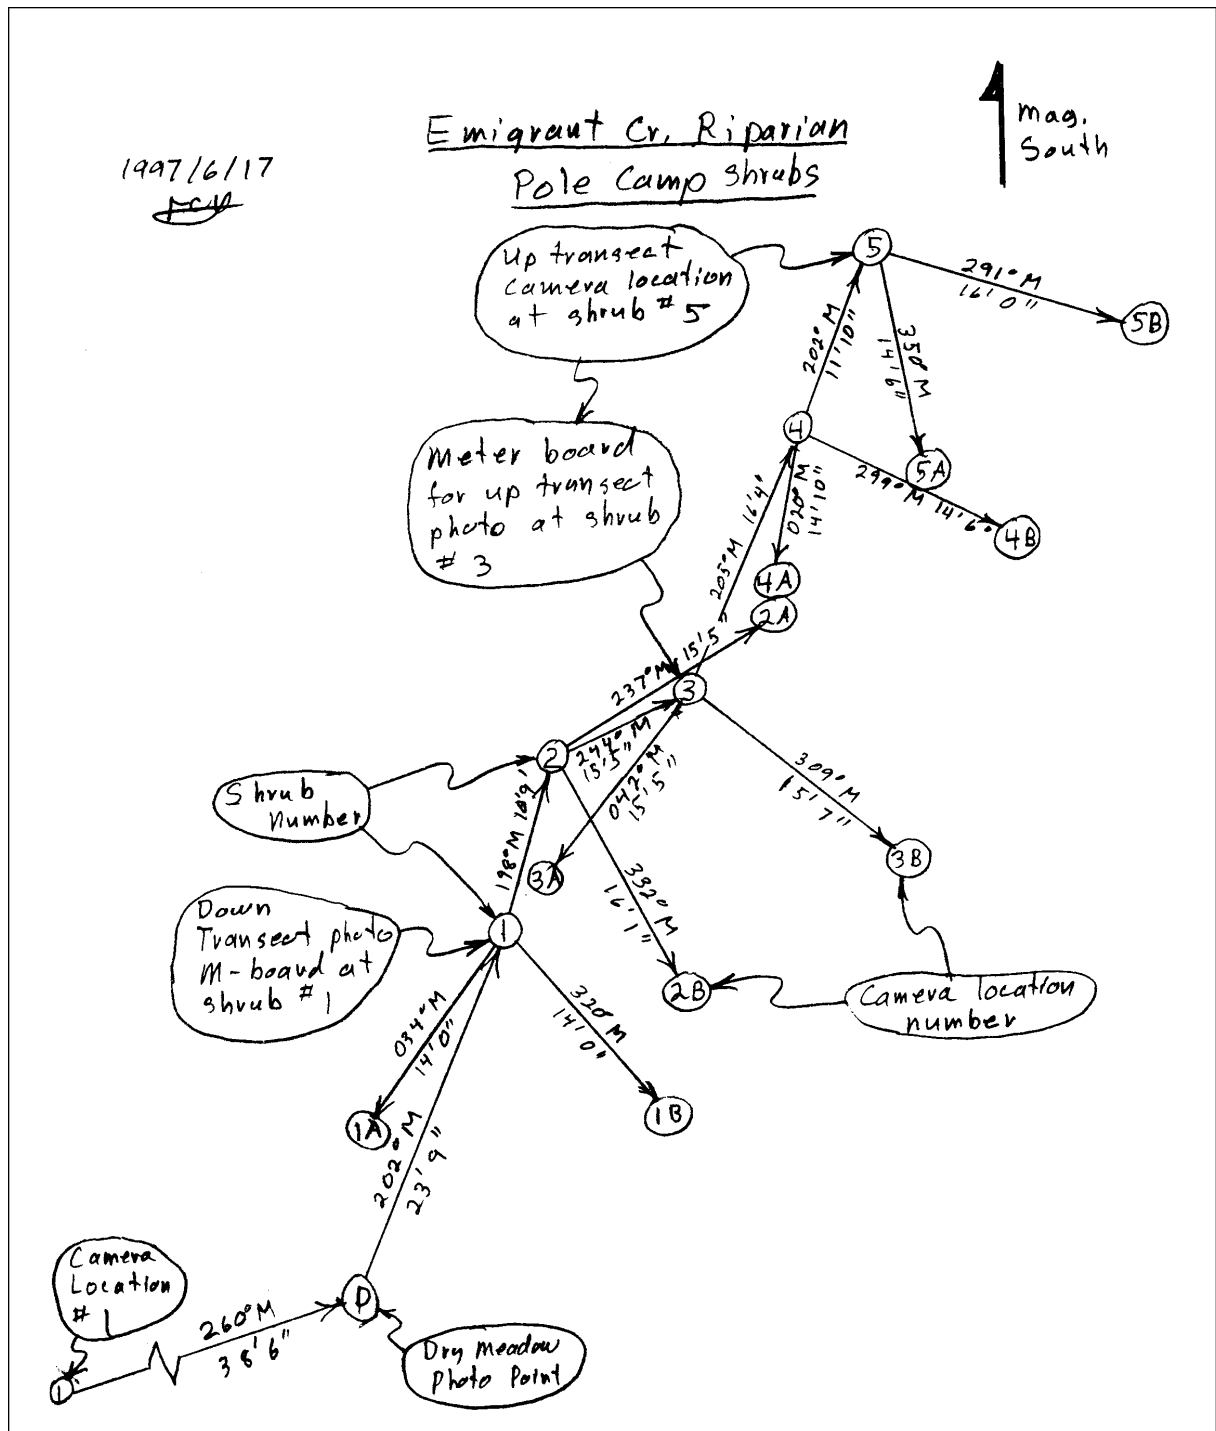 Emigrant Cr. Riparian
Pole Camp Shrubs
1997/6/17
Mag.
South
Up transect
camera location
at shrub # 5
5
291° M
16' 0"
5B
350° M
14' 6"
5A
202° M
11' 10"
4
299° M 14' 6"
4B
020° M
14' 10"
4A
Meter board
for up transect
photo at shrub
# 3
205° M 16' 4"
2A
237° M 15' 5"
3
244° M
15' 5"
2
309° M
15' 7"
3B
042° M
15' 5"
3A
Shrub
Number
198° M 10' 9"
332° M
16' 1"
2B
Camera location
number
Down
Transect photo
M-board at
shrub # 1
1
034° M
14' 0"
1A
320° M
14' 0"
1B
202° M
23' 9"
Camera
Location
# 1
1
260° M
38' 6"
D
Dry Meadow
Photo Point